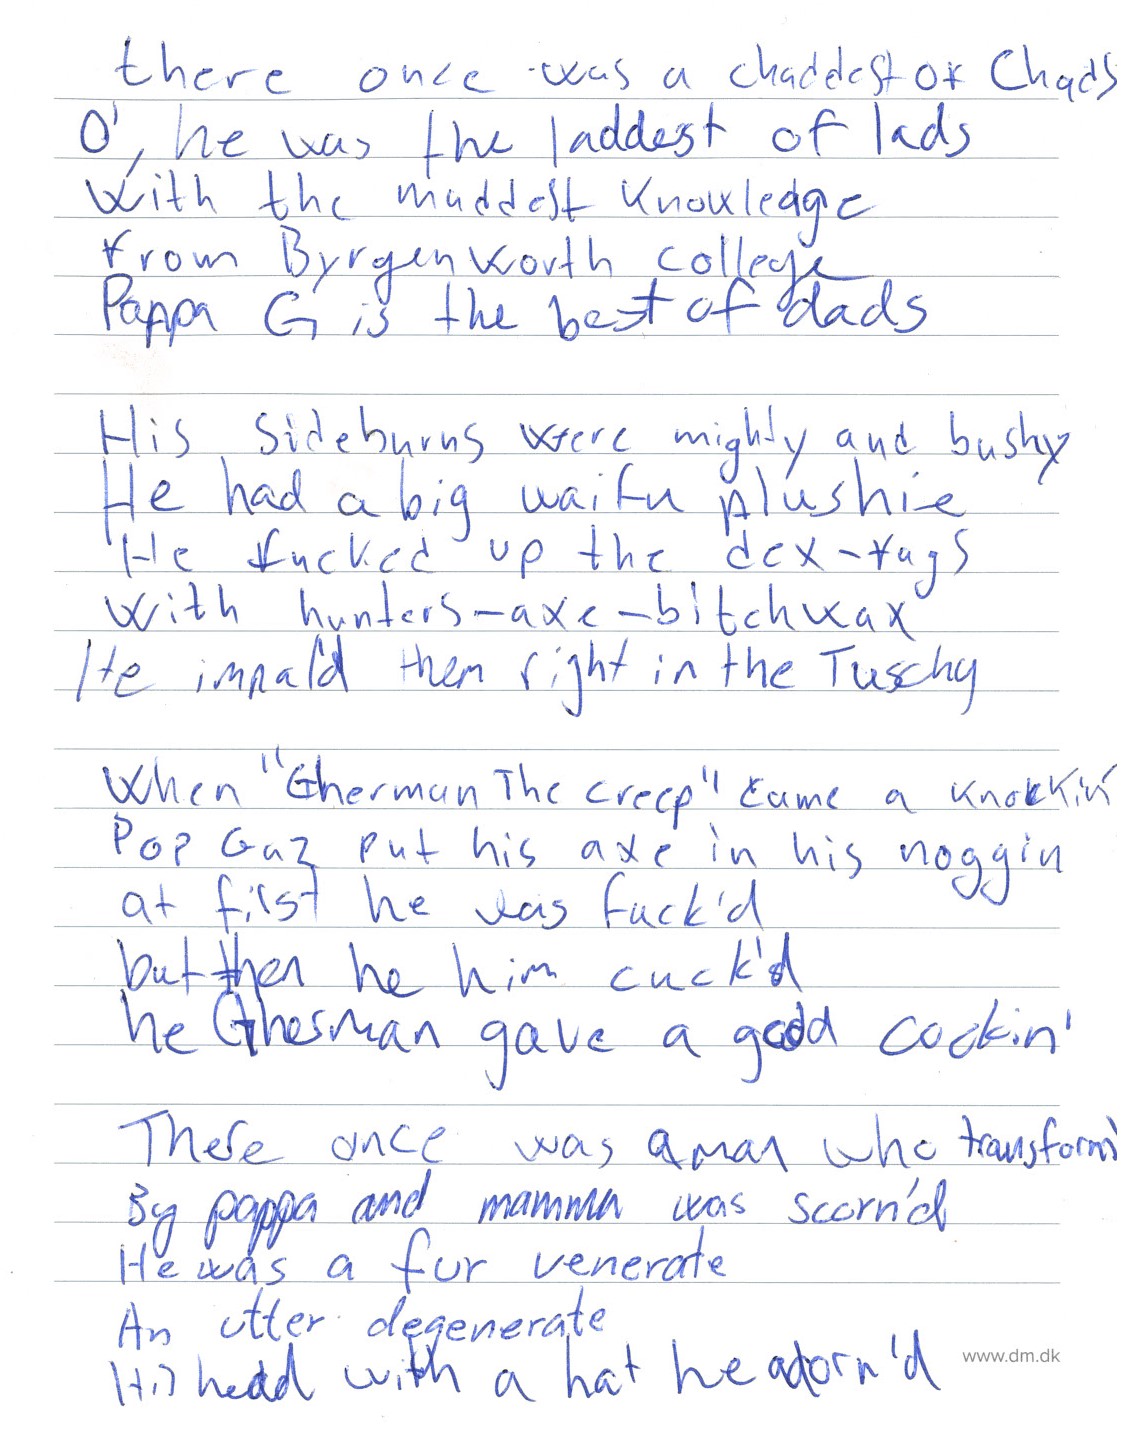 there once was a chaddest of Chads
O', he was the laddest of lads
With the maddest Knowledge
from Byrgenworth college
Pappa G is the best of dads
His Sideburns were mighty and bushy
He had a big waifu plushie
He fucked up the dex-fags
with hunters-axe-bitchwax
He impal'd them right in the Tuschy
When "Gherman The creep" came a knokkin'
Pop Gaz put his axe in his noggin
at first he was fuck'd
but then he him cuck'd
he Gherman gave a good cockin'
There once was a man who transform'
By pappa and mamma was scorn'd
He was a fur venerate
An utter degenerate
His head with a hat he adorn'd
www.dm.dk